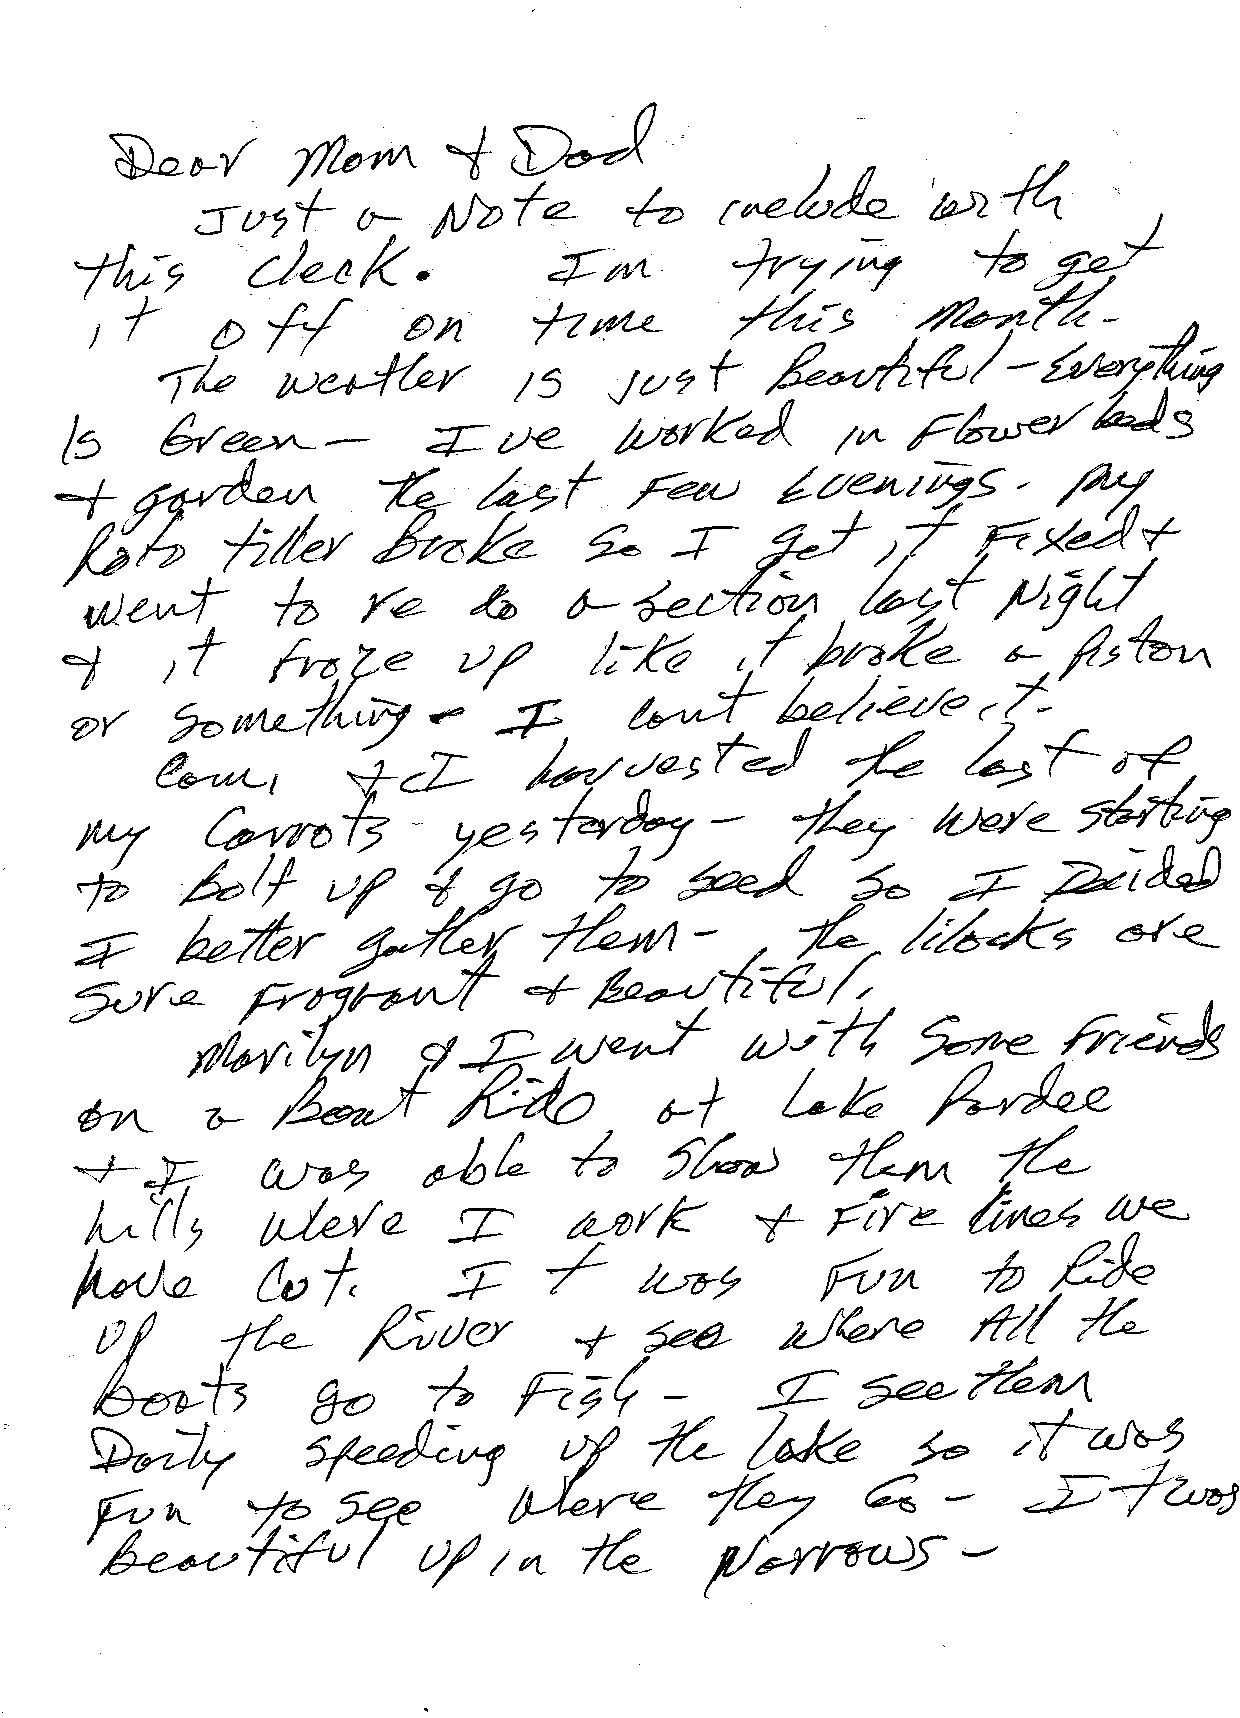 Dear Mom & Dad
Just a Note to include with
this check. I'm trying to get
it off on time this month-
The weather is just Beautiful - Everything
Is Green - I've worked in Flower beds
& garden the last Few Evenings. My
Roto tiller Broke so I get it Fixed &
went to re do a section last Night
& it froze up like it broke a Piston
or something - I can't believe it-
& I harvested the last of
my Carrots yesterday - they were starting
to Bolt up & go to seed so I Decided
I better gather them - the lilacks are
Sure Fragrant & Beautiful.
Marilyn & I went with Some Friends
on a Boat Ride at Lake Pardee
& I was able to Show them the
hills where I work & Fire lines we
have Cut. It was Fun to Ride
up the River & see where All the
boats go to Fish - I see them
Daily speeding up the lake so it was
Fun to see where they Go - It was
Beautiful up in the Narrows -